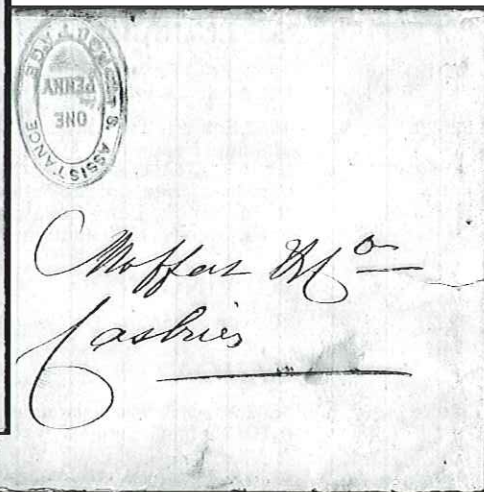 ASSISTANCE
ONE
PENNY
Moffat & Co
Castries